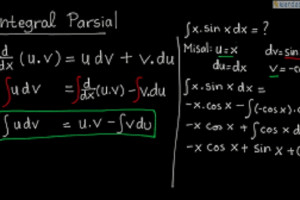 Integral Parsial
d/dx (u.v) = u dv + v.du
∫u dv = ∫d/dx(u.v) - ∫v.du
∫u dv = u.v - ∫v du
∫x.sin x dx = ?
Misal: u = x dv = sin
du = dx v = -co
∫x.sin x dx =
-x.cos x - ∫(-cos x).
-x cos x + ∫cos x d
-x cos x + sin x +